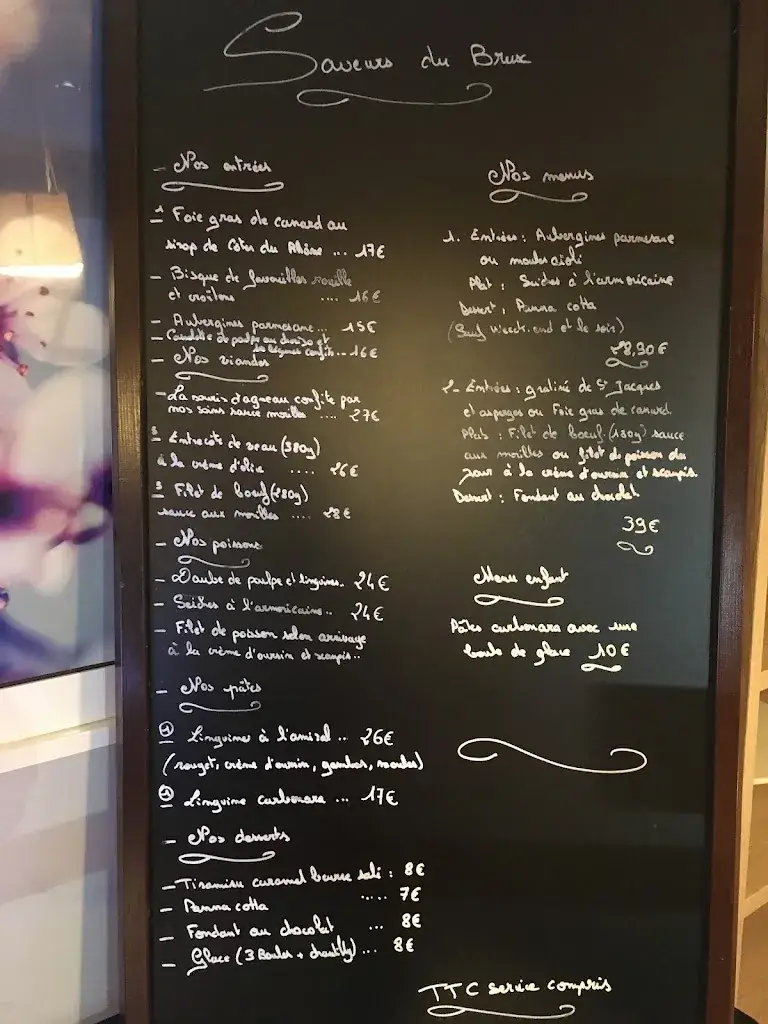 Saveurs du Brux
- Nos entrées
- Foie gras de canard au
sirop de Côtes du Rhône ... 17€
- Bisque de favouilles rouille
et croûtons .... 16€
- Aubergines parmesane... 15€
- de poulpe au chorizo et
légumes confits... 16€
- Nos viandes
- La souris d'agneau confite par
nos soins sauce morilles .... 27€
Entrecôte de veau (380g)
à la crème d'olive .... 26€
Filet de boeuf (280g)
sauce aux morilles .... 28€
- Nos poissons
- Daube de poulpe et linguines.. 24€
- Seiches à l'armoricaine.. 24€
- Filet de poisson selon arrivage
à la crème d'oursin et scampis..
- Nos pâtes
Linguine à l'amiral .. 26€
(rouget, crème d'oursin, gambas, moules)
Linguine carbonara ... 17€
- Nos desserts
- Tiramisu caramel beurre salé : 8€
- Panna cotta ..... 7€
- Fondant au chocolat ... 8€
- Glace (3 Boules + chantilly)... 8€
Nos menus
1. Entrées : Aubergines parmesane
ou moules aïoli
Plat : Seiches à l'armoricaine
Dessert : Panna cotta
(Sauf Week.end et le soir)
28,90€
2- Entrées : gratiné de St Jacques
et asperges ou Foie gras de canard.
Plats : Filet de boeuf (180g) sauce
aux morilles ou filet de poisson du
jour à la crème d'oursin et scampis.
Dessert : Fondant au chocolat
39€
Menu enfant
Pâtes carbonara avec une
boule de glace 10€
TTC service compris